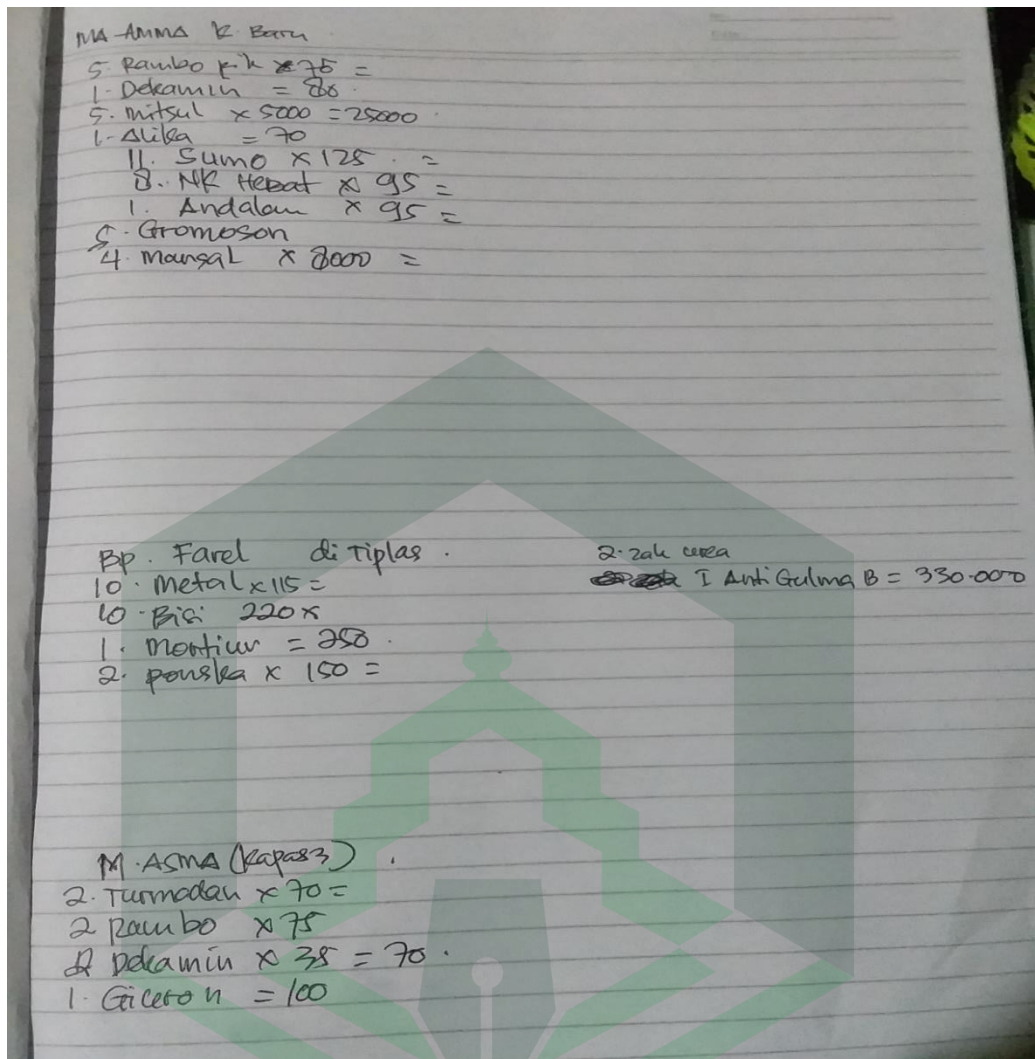 MA-AMMA K. Baru
5. Rambo x 75 =
1. Dekamin = 80.
5. Mitsul x 5000 = 25000.
1. Alika = 70
11. Sumo x 125. =
8. NK Hebat x 95 =
1. Andalan x 95 =
5. Gromoson
4. mansal x 8000 =
Bp. Farel di Tiplas.
10. Metal x 115 =
10. Bisi 220 x
1. = 250.
2. ponska x 150 =
2. zak
I Anti Gulma B = 330.000
M. ASMA (Kapas3).
2. Turmadan x 70 =
2 Rambo x 75
2 Dekamin x 35 = 70.
1. Giceron = 100